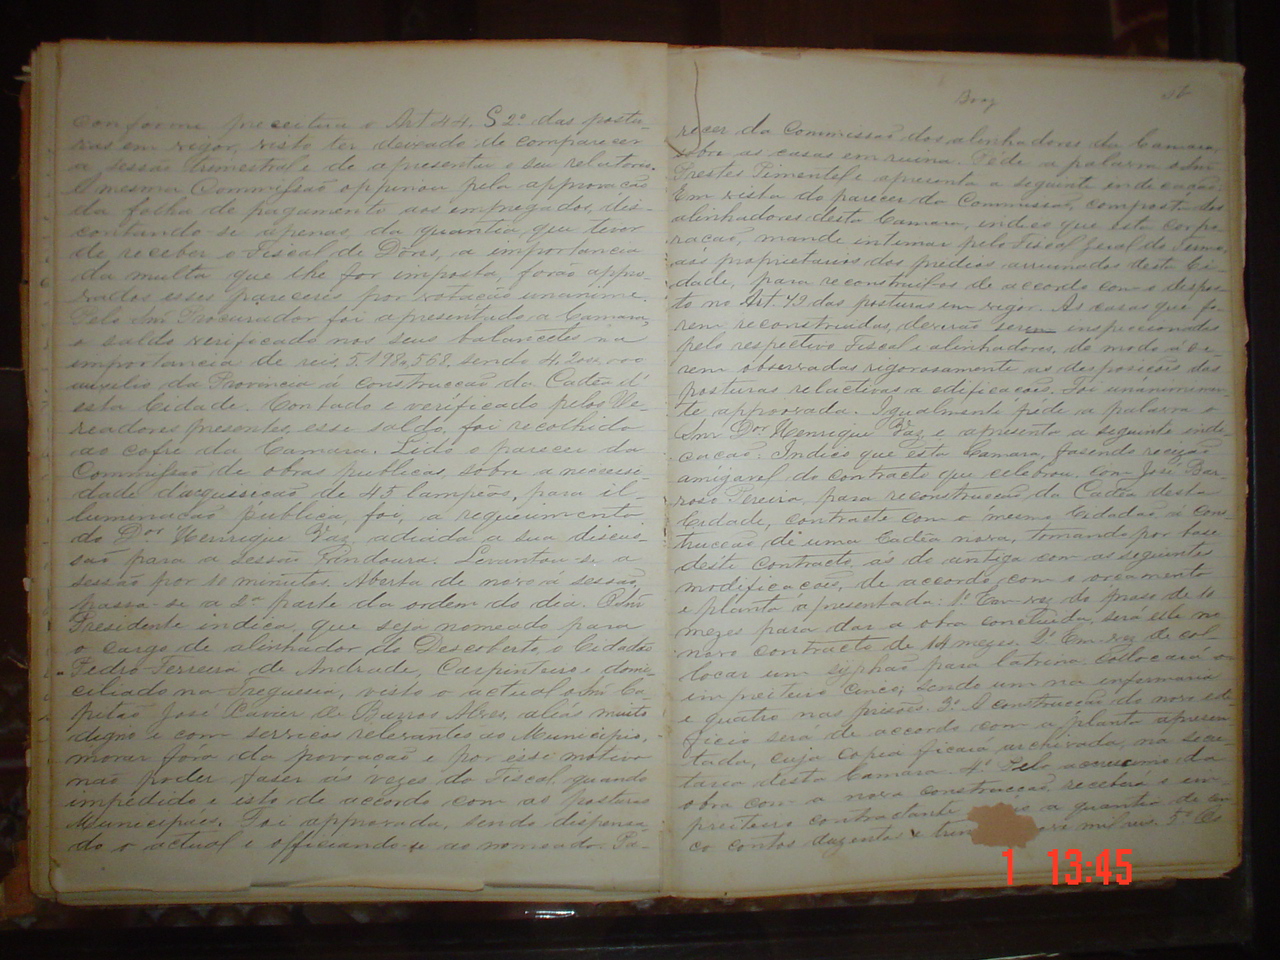 conforme preceitua o Art 44. § 2º das postu-
ras em vigor, visto ter deixado de comparecer
a sessão trimestral e de apresentar o seu relatorio.
A mesma Commissão oppinou pela approvação
da folha de pagamento aos empregados, dis-
contando-se apenas, da quantia que tever
de receber o Fiscal de Dores, a importancia
da multa que lhe for imposta, forão appro-
vados esses pareceres por votação unanime.
Pelo Snr Procurador foi apresentado a Camara,
o saldo verificado nos seus balancetes na
importancia de reis, 5.198,568, sendo 4.200,000
auxilio da Provincia á construcção da Cadêa d'
esta Cidade. Contado e verificado pelos Ve-
readores presentes, esse saldo, foi recolhido
ao cofre da Camara. Lido o parecer da
Commissão de obras publicas, sobre a necessi-
dade d'acquisição de 45 lampeões, para il-
luminação publica, foi, a requerimento
do Dor Henrique Vaz, adiada a sua discus-
são para a sessão vindoura. Levantou-se a
sessão por 10 minutos. Aberta de novo a sessão,
passa-se a 2ª parte da ordem do dia. O Snr
Presidente indica, que seja nomeado para
o cargo de alinhador do Descoberto, o Cidadão
Pedro Ferreira de Andrade, Carpinteiro e domi-
ciliado na Freguesia, visto o actual o Snr Ca-
pitão José Xavier de Barros Alves, aliás muito
digno e com serviços relevantes ao Municipio,
morar fóra da povoação e por esse motivo
não poder faser as vezes do Fiscal quando
impedido e isto de accordo com as posturas
Municipaes. Foi approvada, sendo dispensa-
do o actual e officiando-se ao nomeado. Pa-
recer da Commissão dos alinhadores da Camara,
sobre as casas em ruina. Péde a palavra o Snr
Prestes Pimentel e apresenta a seguinte indicação,
Em vista do parecer da Commissão, composta dos
alinhadores desta Camara, indico que esta corpo-
ração, mande intimar pelo Fiscal Geral do Termo,
aos proprietarios dos predios arruinados desta Ci-
dade, para reconstruil-os de accordo com o dispos-
to no Art 72 das posturas em vigor. As casas que fo-
rem reconstruidas, deverão serem inspeccionadas
pelo respectivo Fiscal e alinhadores, de modo á se-
rem observadas rigorosamente as desposições das
posturas relactivas a edificações. Foi unanimimen-
te approvada. Igualmente péde a palavra o
Snr Dor Henrique Vaz, e apresenta a seguinte indi-
cação: Indico que esta Camara, fasendo recisão
amigavel do contracto que celebrou, com José Bar-
roso Pereira, para reconstrucção da Cadêa desta
Cidade, contracte com o mesmo Cidadão á cons-
trucção de uma Cadêa nova, tomando por base
deste Contracto, ás do antigo com as seguintes
modificações, de accordo com o orçamento
e planta apresentada: 1ª Em vez do praso de 10
mezes para dar a obra concluida, será este no
novo contracto de 14 mezes. 2ª Em vez de col-
locar um syphão para latrina, collocará o
impreiteiro cinco; sendo um na enfermaria
e quatro nas prisões. 3ª A construcção do novo ide-
ficio será de accordo com a planta apresen-
tada, cuja copia ficará archivada, na secre-
taria desta Camara. 4ª Pelo accrescimo da
obra com a nova construcção receberá o im-
preiteiro contractante a quantia de cin-
co contos duzentos e mil reis. 5ª Os
1 13:45